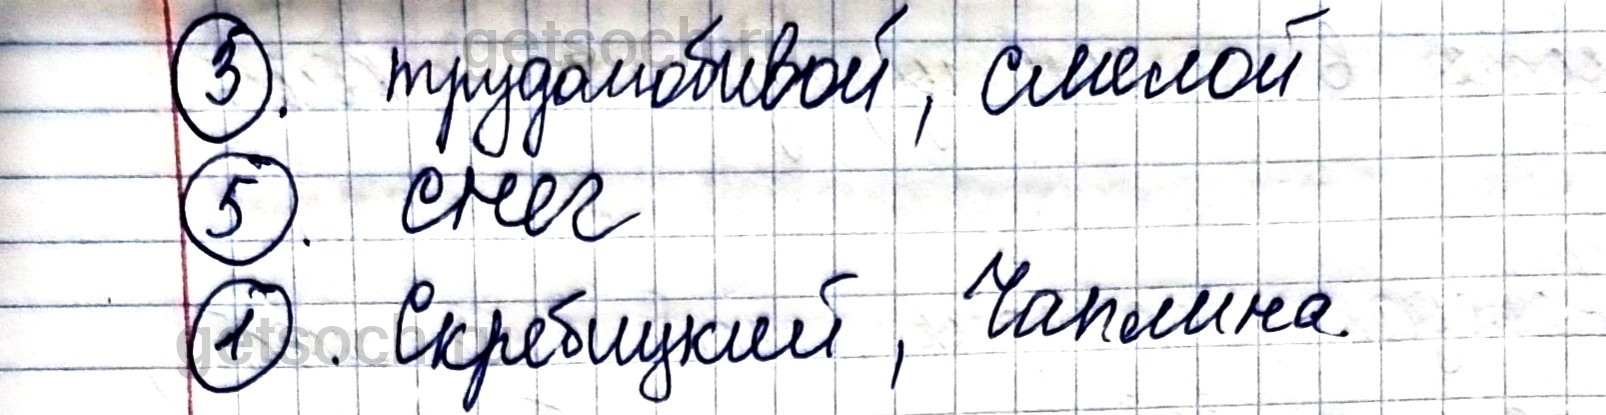 3. трудолюбивой, смелой
5. снег
1. Скребицкий, Чаплина.
getsoch.ru
getsoch.ru